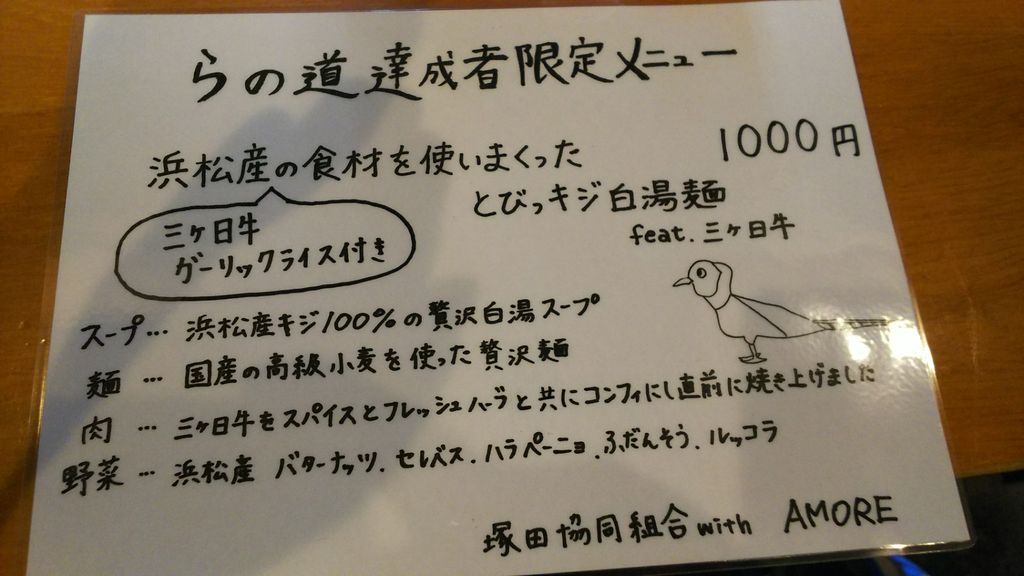 らの道達成者限定メニュー
1000円
浜松産の食材を使いまくった
とびっキジ白湯麺
feat. 三ヶ日牛
三ヶ日牛
ガーリックライス付き
スープ… 浜松産キジ100%の贅沢白湯スープ
麺 … 国産の高級小麦を使った贅沢麺
肉 … 三ヶ日牛をスパイスとフレッシュハーブと共にコンフィにし直前に焼き上げました
野菜 … 浜松産 バターナッツ、セレバス、ハラペーニョ、ふだんそう、ルッコラ
塚田協同組合 with AMORE